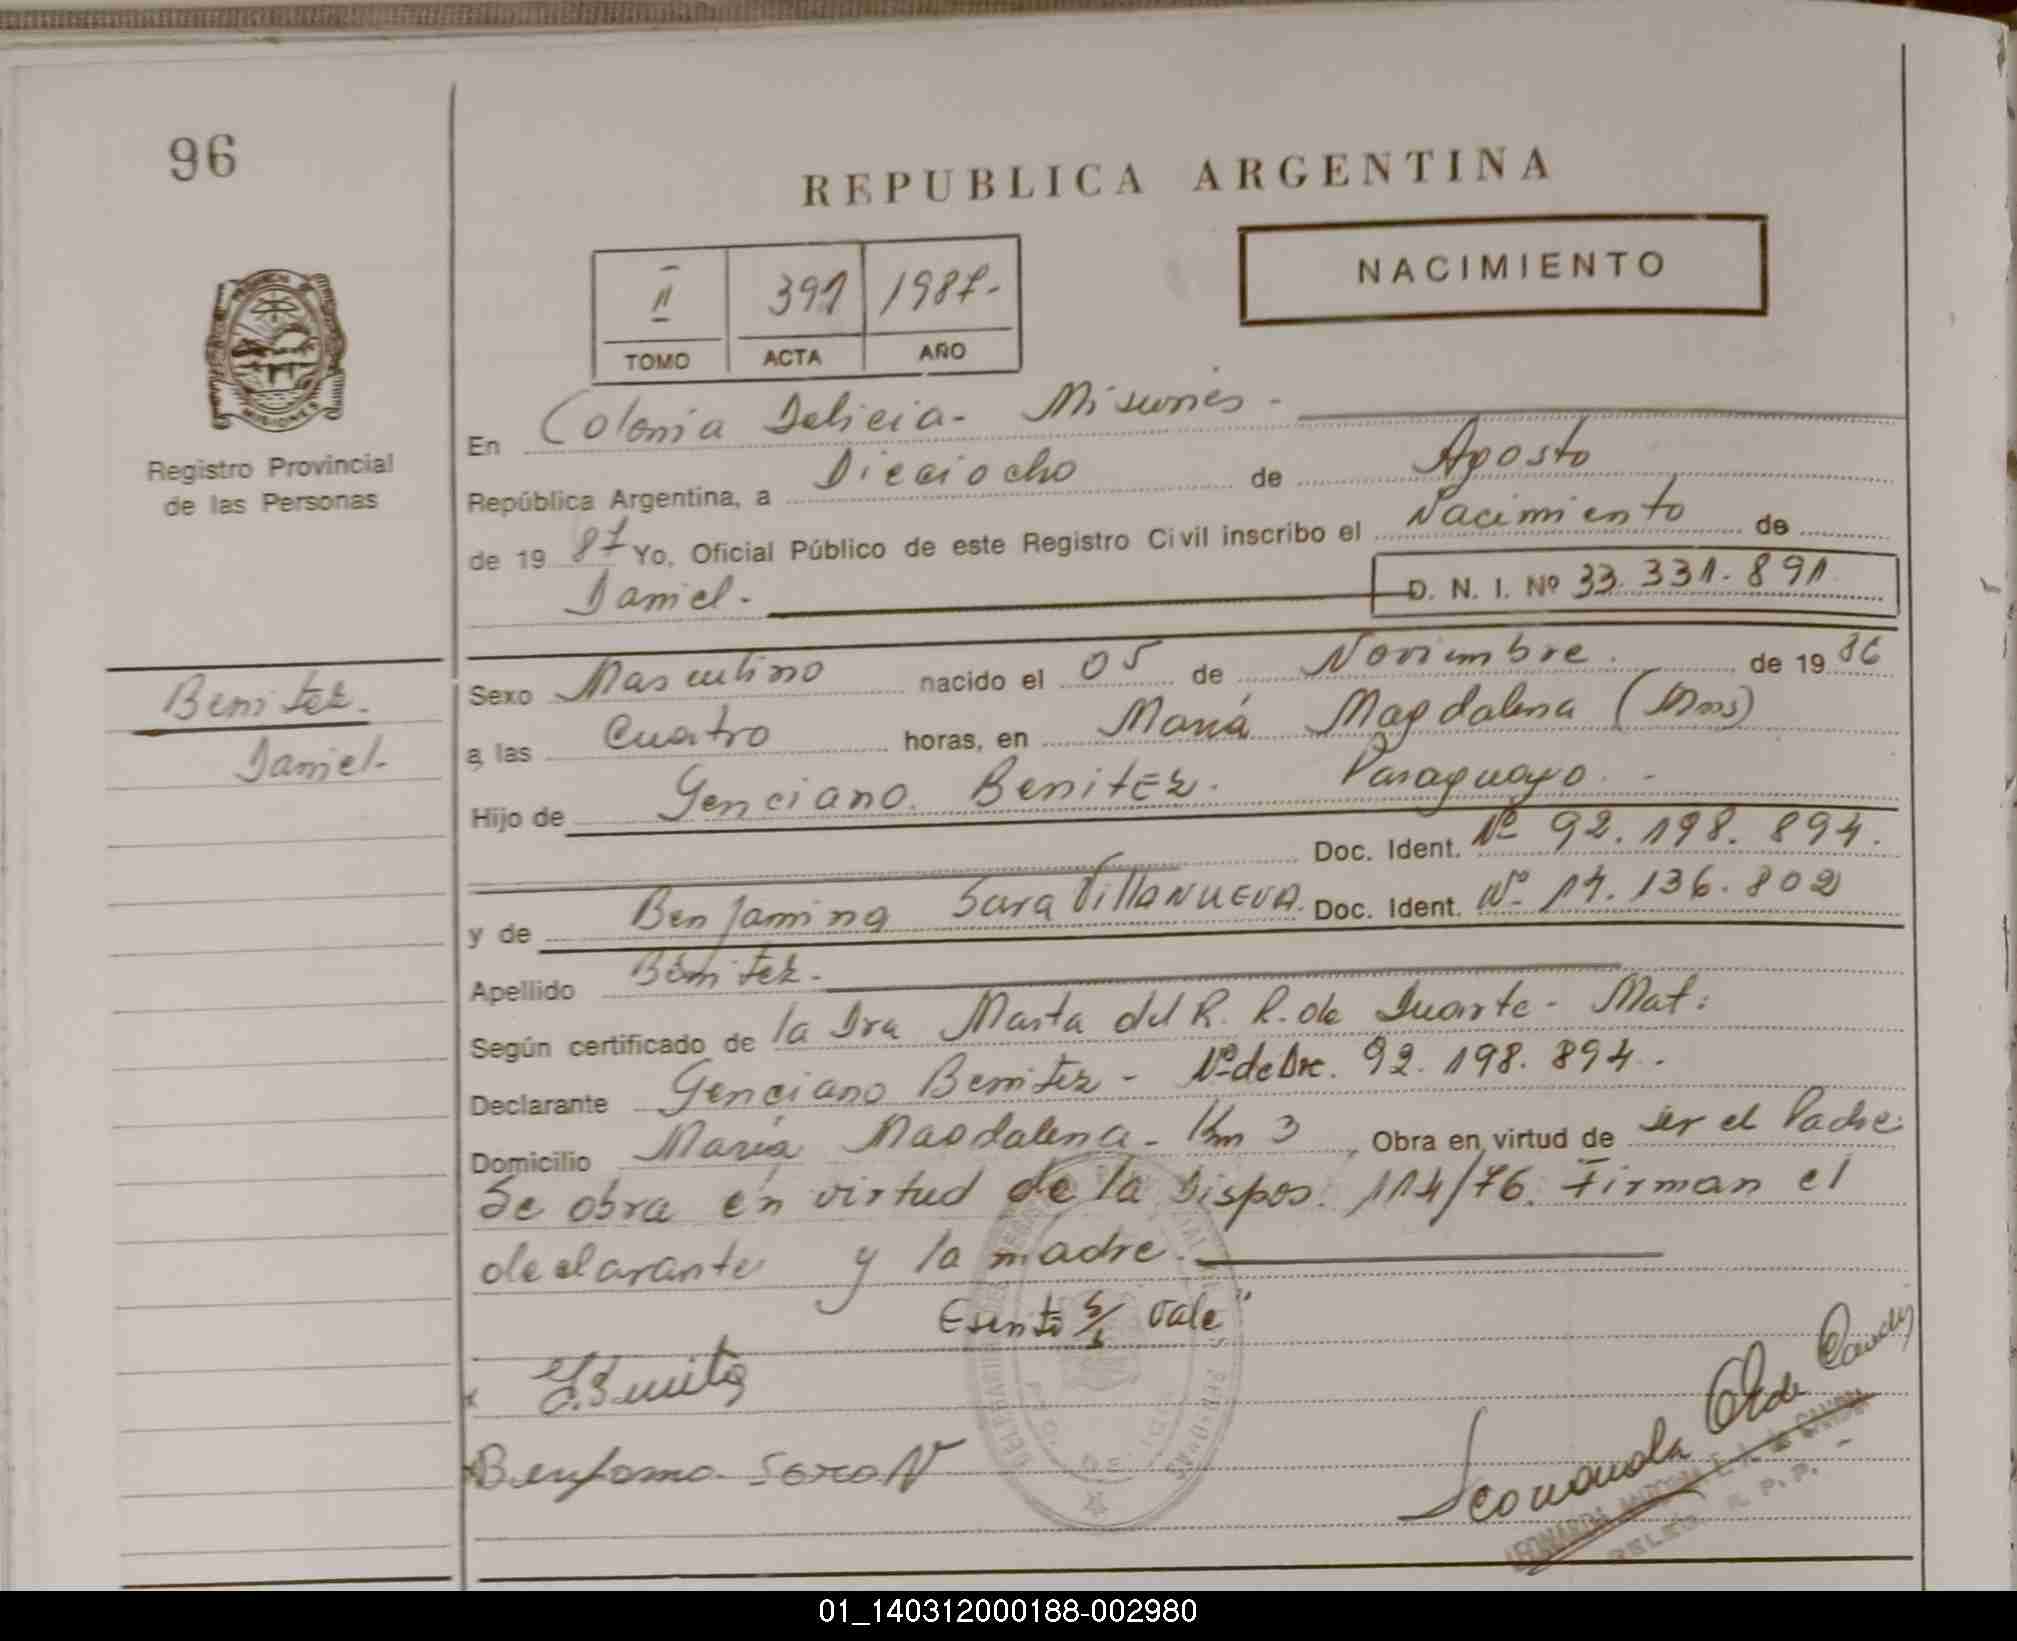 96
REPUBLICA ARGENTINA
NACIMIENTO
II 391 1987.-
TOMO ACTA AÑO
Registro Provincial
de las Personas
En Colonia Delicia - Misiones -
República Argentina, a Dieciocho de Agosto
de 19 87 Yo, Oficial Público de este Registro Civil inscribo el Nacimiento de
Daniel.- D. N. I. Nº 33.331.891
Benitez.
Daniel.-
Sexo Masculino nacido el 05 de Noviembre. de 19 86
a las Cuatro horas, en María Magdalena (Mns)
Hijo de Genciano Benitez. Paraguayo. -
Doc. Ident. Nº 92.198.894.
y de Benjamina Sara VillANUEVA. Doc. Ident. Nº 14.136.802
Apellido Benitez.-
Según certificado de la Dra Marta del R. R. de Duarte - Mat:
Declarante Genciano Benitez - Nº de Doc. 92.198.894.
Domicilio María Magdalena - Km 3, Obra en virtud de ser el Padre
Se obra en virtud de la Dispos. 114/76. Firman el
declarante y la madre.
vale"
Benjamina Sara V
LEONARDA
R. P. P.
01_140312000188-002980